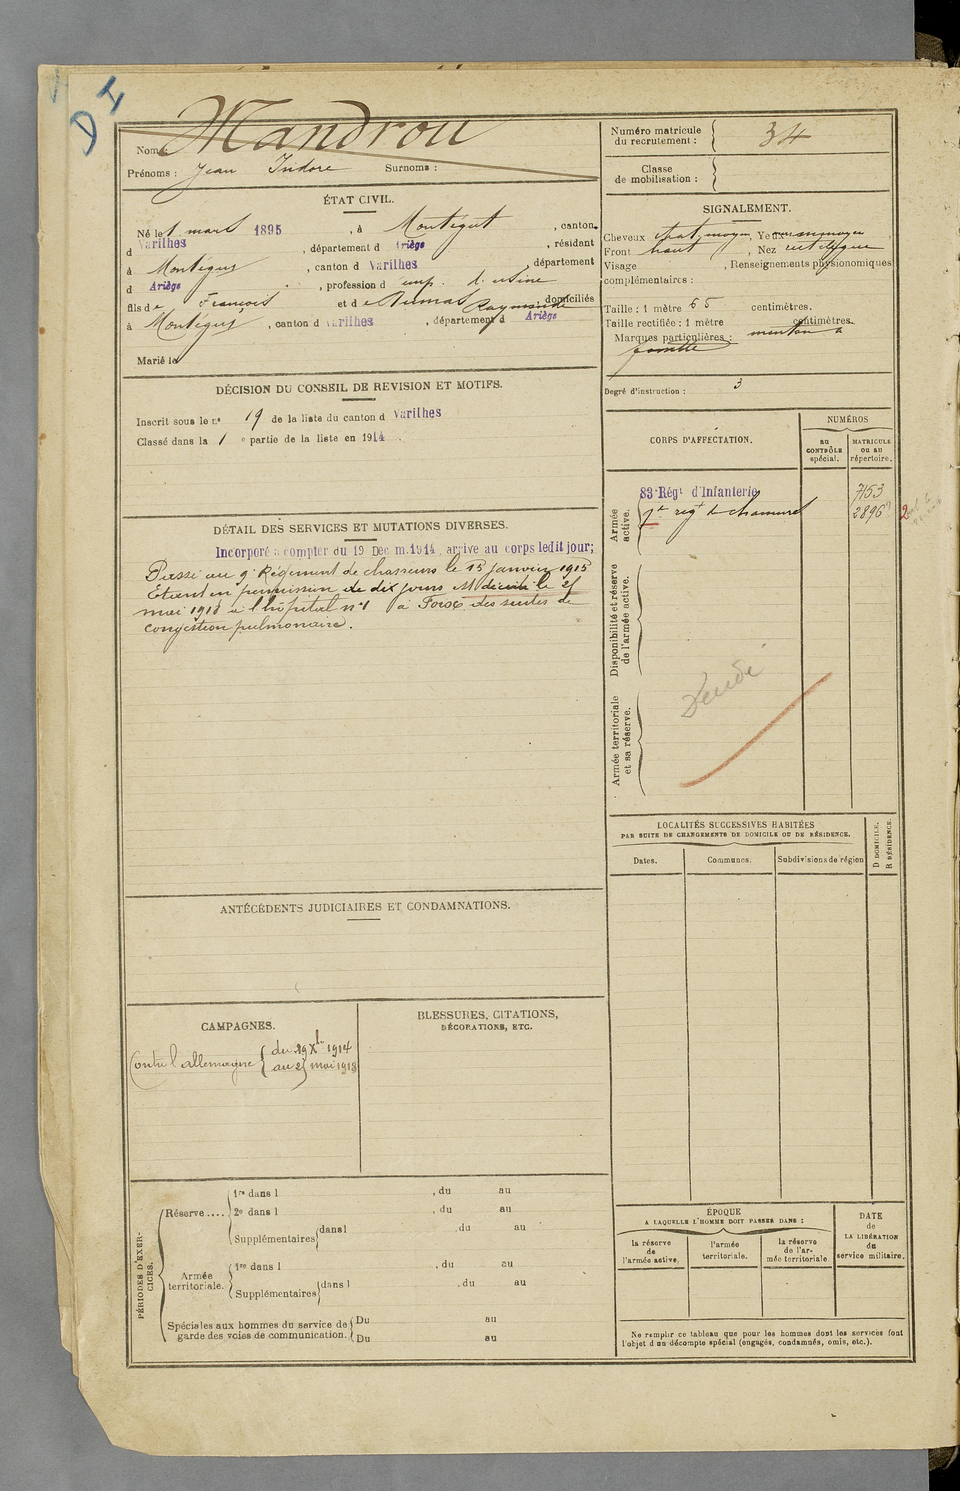 DI
Nom Mandrou
Prénoms : Jean Isidore Surnoms :
Numéro matricule
du recrutement : 34
Classe
de mobilisation :
ÉTAT CIVIL.
Né le 1 mars 1895, à Montégut, canton
d Varilhes, département d Ariège, résidant
à Montégut, canton d Varilhes, département
d Ariège, profession d emp. d. usine
fils de François et de Dumas Raymonde, domiciliés
à Montégut, canton d Varilhes, département d Ariège
Marié le
SIGNALEMENT.
Cheveux chat. moyen, Yeux
Front haut, Nez rectiligne
Visage , Renseignements physionomiques
complémentaires :
Taille : 1 mètre 65 centimètres.
Taille rectifiée : 1 mètre centimètres.
Marques particulières : menton à
Degré d'instruction : 3
DÉCISION DU CONSEIL DE REVISION ET MOTIFS.
Inscrit sous le n° 19 de la liste du canton d Varilhes
Classé dans la 1 e partie de la liste en 1914.
DÉTAIL DES SERVICES ET MUTATIONS DIVERSES.
Incorporé à compter du 19 Décem. 1914, arrivé au corps ledit jour;
Passé au 9e Régiment de chasseurs le 15 janvier 1915
Etant en permission de dix jours décédé le 25
mai 1918 à l'hôpital n°1 à Foix des suites de
congestion pulmonaire.
CORPS D'AFFECTATION.
NUMÉROS
au
CONTRÔLE
spécial.
MATRICULE
OU AU
répertoire.
Armée
active.
83e Régt d'Infanterie 7153
9e régt de chasseurs 2896 2
Disponibilité et réserve
de l'armée active.
Armée territoriale
et sa réserve.
LOCALITÉS SUCCESSIVES HABITÉES
PAR SUITE DE CHANGEMENTS DE DOMICILE OU DE RÉSIDENCE.
Dates. Communes. Subdivisions de région
D DOMICILE.
R RÉSIDENCE.
ANTÉCÉDENTS JUDICIAIRES ET CONDAMNATIONS.
CAMPAGNES.
Contre l'allemagne { du 19 Xbre 1914
au 25 mai 1918
BLESSURES, CITATIONS,
DÉCORATIONS, ETC.
PÉRIODES D'EXER-
CICES.
Réserve ....
1re dans l , du au
2e dans l , du au
Supplémentaires dans l , du au
Armée
territoriale.
1re dans l , du au
Supplémentaires dans l , du au
Spéciales aux hommes du service de
garde des voies de communication.
Du au
Du au
ÉPOQUE
A LAQUELLE L'HOMME DOIT PASSER DANS :
la réserve
de
l'armée active.
l'armée
territoriale.
la réserve
de l'ar-
mée territoriale
DATE
de
LA LIBÉRATION
du
service militaire.
Ne remplir ce tableau que pour les hommes dont les services font
l'objet d'un décompte spécial (engagés, condamnés, omis, etc.).